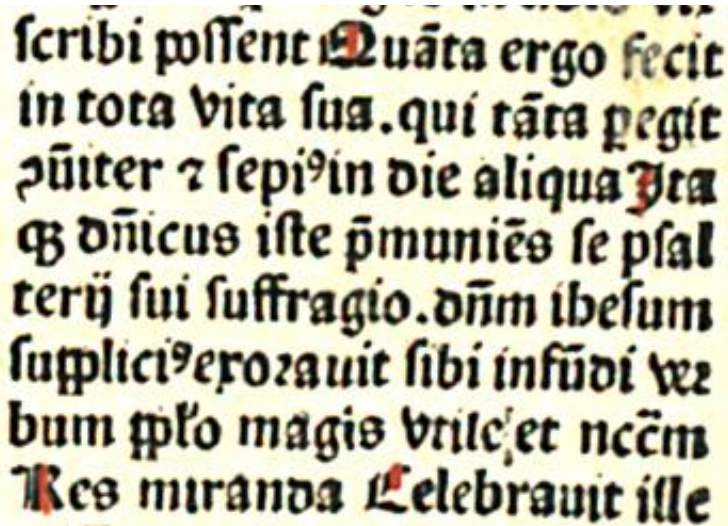 ſcribi poſſent Quāta ergo fecit
in tota vita ſua. qui tāta ꝑegit
ꝯūiter ⁊ ſepiꝰ in die aliqua Ita
ꝙ dn̄icus iſte p̄muniēs ſe pſal
terij ſui ſuffragio. dn̄m iheſum
ſuppliciꝰ exorauit ſibi infūdi ver
bum pplo magis vtile et neceſſariū
Res miranda Celebrauit ille